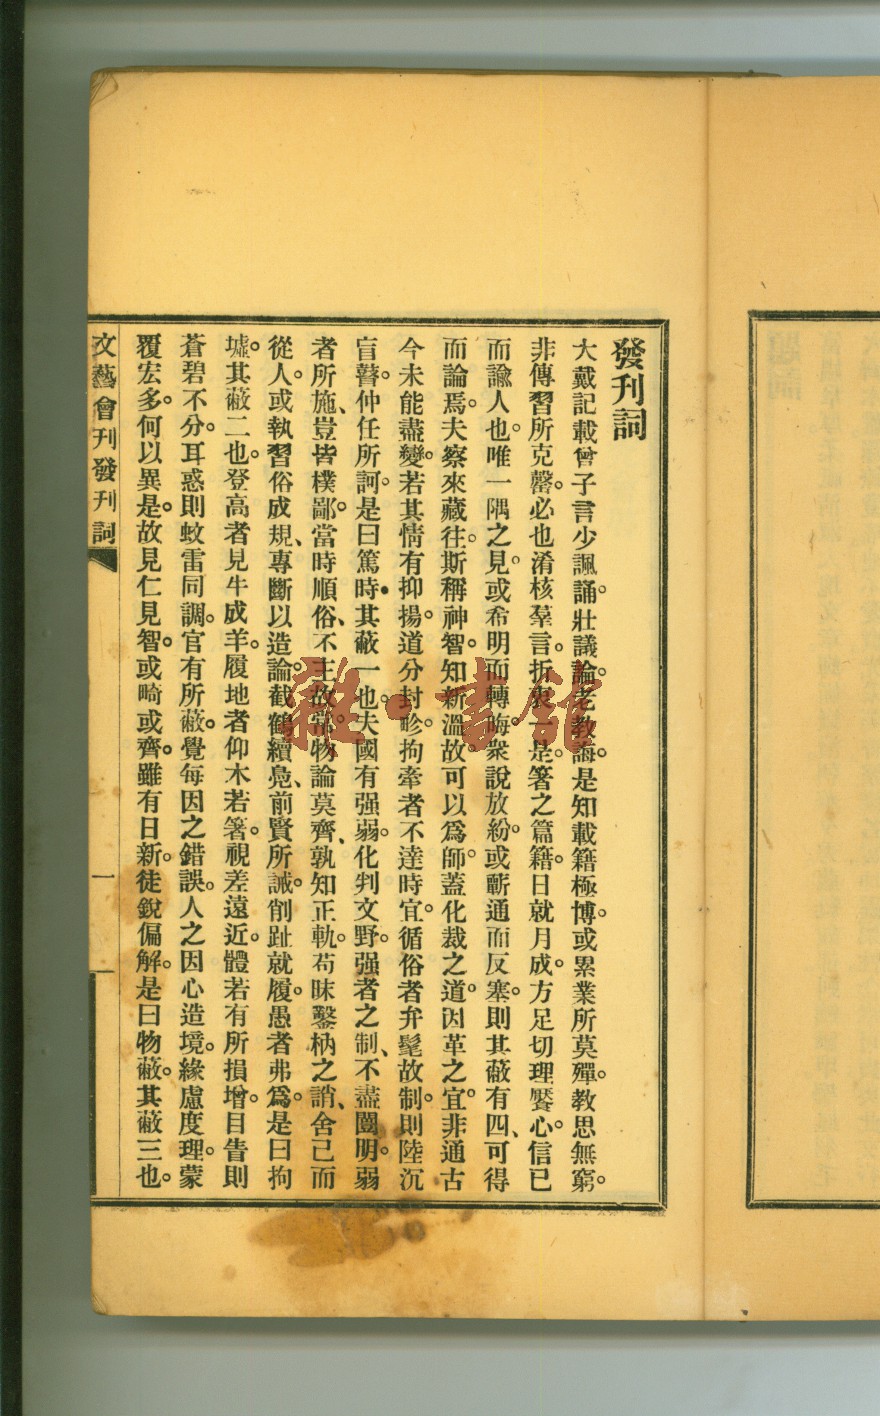 發刊詞
大戴記載曾子言少諷誦。壯議論。老教誨。是知載籍極博。或累業所莫殫。教思無窮。
非傳習所克罄。必也淆核羣言。折衷一是。箸之篇籍。日就月成。方足切理饜心。信已
而諭人也。唯一隅之見。或希明而轉晦。衆說放紛。或蘄通而反塞。則其蔽有四、可得
而論焉。夫察來藏往。斯稱神智。知新溫故。可以爲師。蓋化裁之道。因革之宜。非通古
今未能盡變。若其情有抑揚。道分封畛。拘牽者不達時宜。循俗者弁髦故制。則陸沉
盲瞽。仲任所訶。是曰篤時。其蔽一也。夫國有强弱。化判文野。强者之制、不盡闓明。弱
者所施、豈皆樸鄙。當時順俗、不主故常。物論莫齊、孰知正軌。苟昧鑿枘之誚、舍己而
從人。或執習俗成規、專斷以造論。截鶴續鳧、前賢所誡。削趾就履。愚者弗爲。是曰拘
墟。其蔽二也。登高者見牛成羊。履地者仰木若箸。視差遠近。體若有所損增。目眚則
蒼碧不分。耳惑則蚊雷同調。官有所蔽。覺每因之錯誤。人之因心造境。緣慮度理。蒙
覆宏多。何以異是。故見仁見智。或畸或齊。雖有日新。徒銳偏解。是曰物蔽。其蔽三也。
文藝會刊發刊詞
一
雜·書館